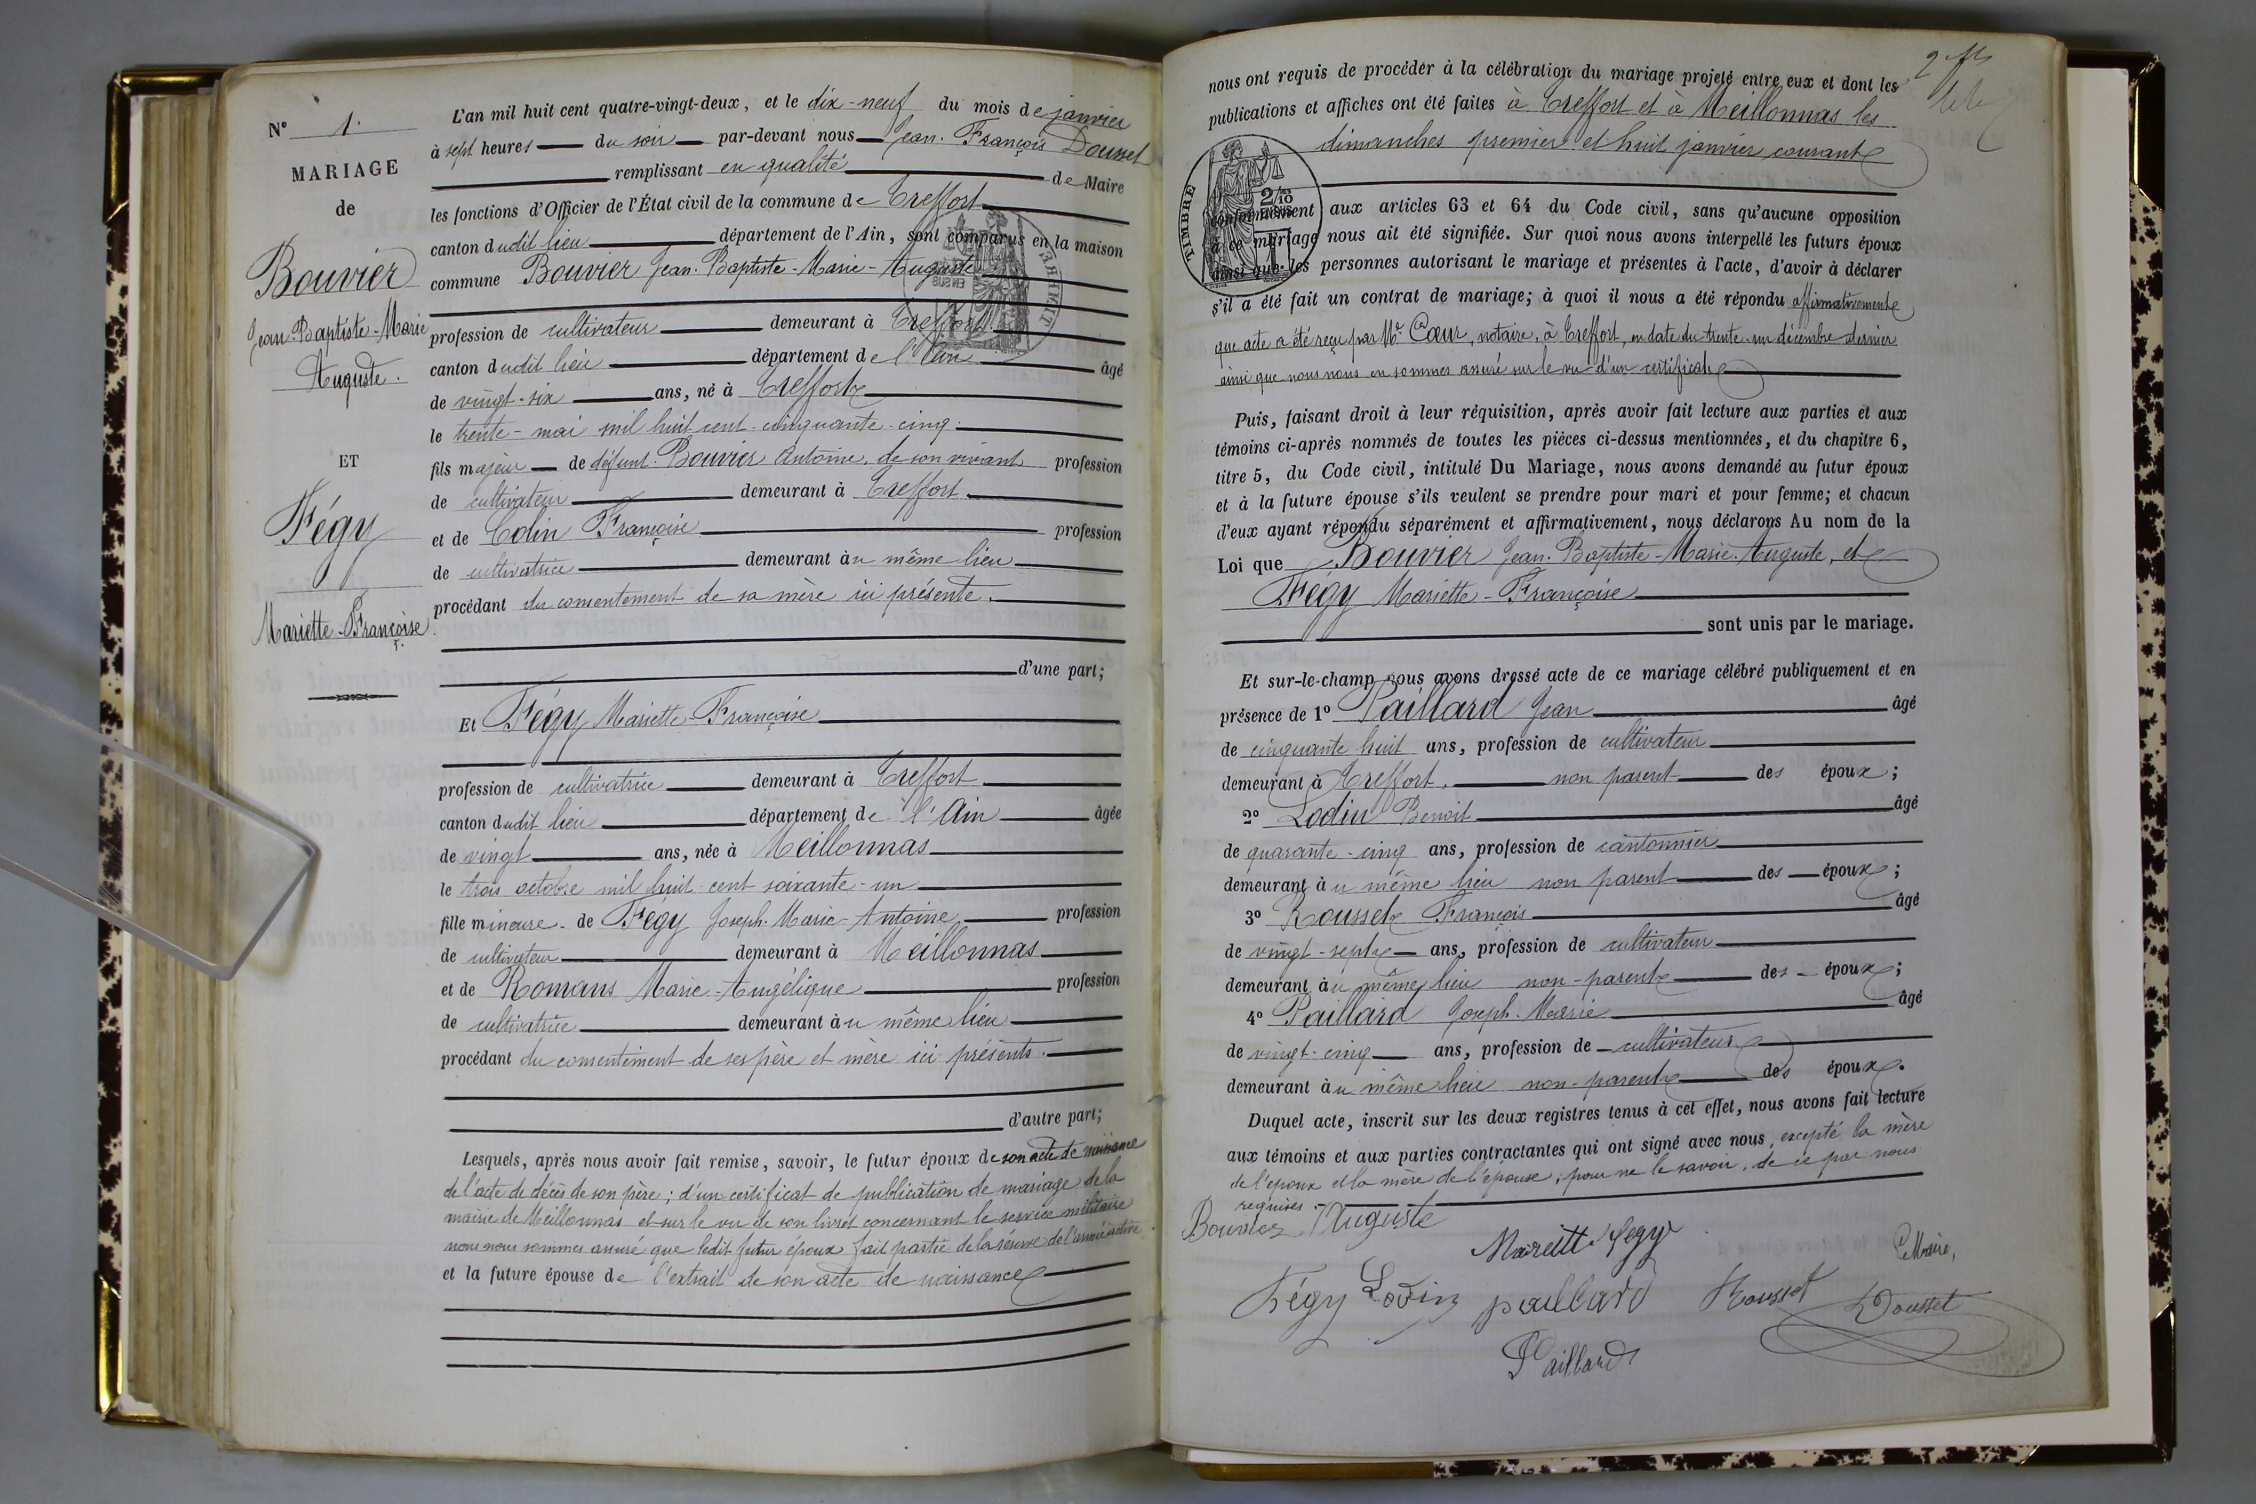 N° 1.
MARIAGE
de
Bouvier
Jean-Baptiste-Marie
Auguste.
ET
Fégy
Mariette-Françoise.
L'an mil huit cent quatre-vingt-deux, et le dix-neuf du mois de janvier
à sept heures du soir par-devant nous Jean-François Dousset
remplissant en qualité de Maire
les fonctions d'Officier de l'État civil de la commune de Treffort
canton dudit lieu département de l'Ain, sont comparus en la maison
commune Bouvier Jean-Baptiste-Marie-Auguste
profession de cultivateur demeurant à Treffort
canton dudit lieu département de l'Ain âgé
de vingt-six ans, né à Treffort
le trente-mai mil huit cent cinquante-cinq.
fils majeur de défunt Bouvier Antoine, de son vivant profession
de cultivateur demeurant à Treffort.
et de Colin Françoise profession
de cultivatrice demeurant au même lieu
procédant du consentement de sa mère ici présente.
d'une part;
Et Fégy Mariette-Françoise
profession de cultivatrice demeurant à Treffort
canton dudit lieu département de l'Ain âgée
de vingt ans, née à Meillonnas
le trois octobre mil huit cent soixante-un
fille mineure de Fégy Joseph-Marie-Antoine profession
de cultivateur demeurant à Meillonnas
et de Romans Marie-Angélique profession
de cultivatrice demeurant au même lieu
procédant du consentement de ses père et mère ici présents.
d'autre part;
Lesquels, après nous avoir fait remise, savoir, le futur époux de son acte de naissance
de l'acte de décès de son père; d'un certificat de publication de mariage de la
mairie de Meillonnas et sur le vu de son livret concernant le service militaire
nous nous sommes assuré que ledit futur époux fait partie de la réserve de l'armée active
et la future épouse de l'extrait de son acte de naissance
nous ont requis de procéder à la célébration du mariage projeté entre eux et dont les
publications et affiches ont été faites à Treffort et à Meillonnas les
dimanches premier et huit janvier courant
TIMBRE
2/10
EN SUS
conformément aux articles 63 et 64 du Code civil, sans qu'aucune opposition
à ce mariage nous ait été signifiée. Sur quoi nous avons interpellé les futurs époux
ainsi que les personnes autorisant le mariage et présentes à l'acte, d'avoir à déclarer
s'il a été fait un contrat de mariage; à quoi il nous a été répondu affirmativement
que acte a été reçu par Me Cœur, notaire, à Treffort, en date du trente-un décembre dernier
ainsi que nous nous en sommes assuré sur le vu d'un certificat
Puis, faisant droit à leur réquisition, après avoir fait lecture aux parties et aux
témoins ci-après nommés de toutes les pièces ci-dessus mentionnées, et du chapitre 6,
titre 5, du Code civil, intitulé Du Mariage, nous avons demandé au futur époux
et à la future épouse s'ils veulent se prendre pour mari et pour femme; et chacun
d'eux ayant répondu séparément et affirmativement, nous déclarons Au nom de la
Loi que Bouvier Jean-Baptiste-Marie-Auguste, et
Fégy Mariette-Françoise
sont unis par le mariage.
Et sur-le-champ nous avons dressé acte de ce mariage célébré publiquement et en
présence de 1° Paillard Jean âgé
de cinquante huit ans, profession de cultivateur
demeurant à Treffort. non parent des époux;
2° Lodin Benoit âgé
de quarante-cinq ans, profession de cantonnier
demeurant au même lieu non parent des époux;
3° Rousset François âgé
de vingt-sept ans, profession de cultivateur
demeurant au même lieu non-parent des époux;
4° Paillard Joseph-Marie âgé
de vingt-cinq ans, profession de cultivateur
demeurant au même lieu non-parent des époux.
Duquel acte, inscrit sur les deux registres tenus à cet effet, nous avons fait lecture
aux témoins et aux parties contractantes qui ont signé avec nous, excepté la mère
de l'époux et la mère de l'épouse, pour ne le savoir, de ce par nous
requises.
Bouvier Auguste
Mariette fegy
Le Maire,
Fégy Lodin paillard Rousset Dousset
Paillard